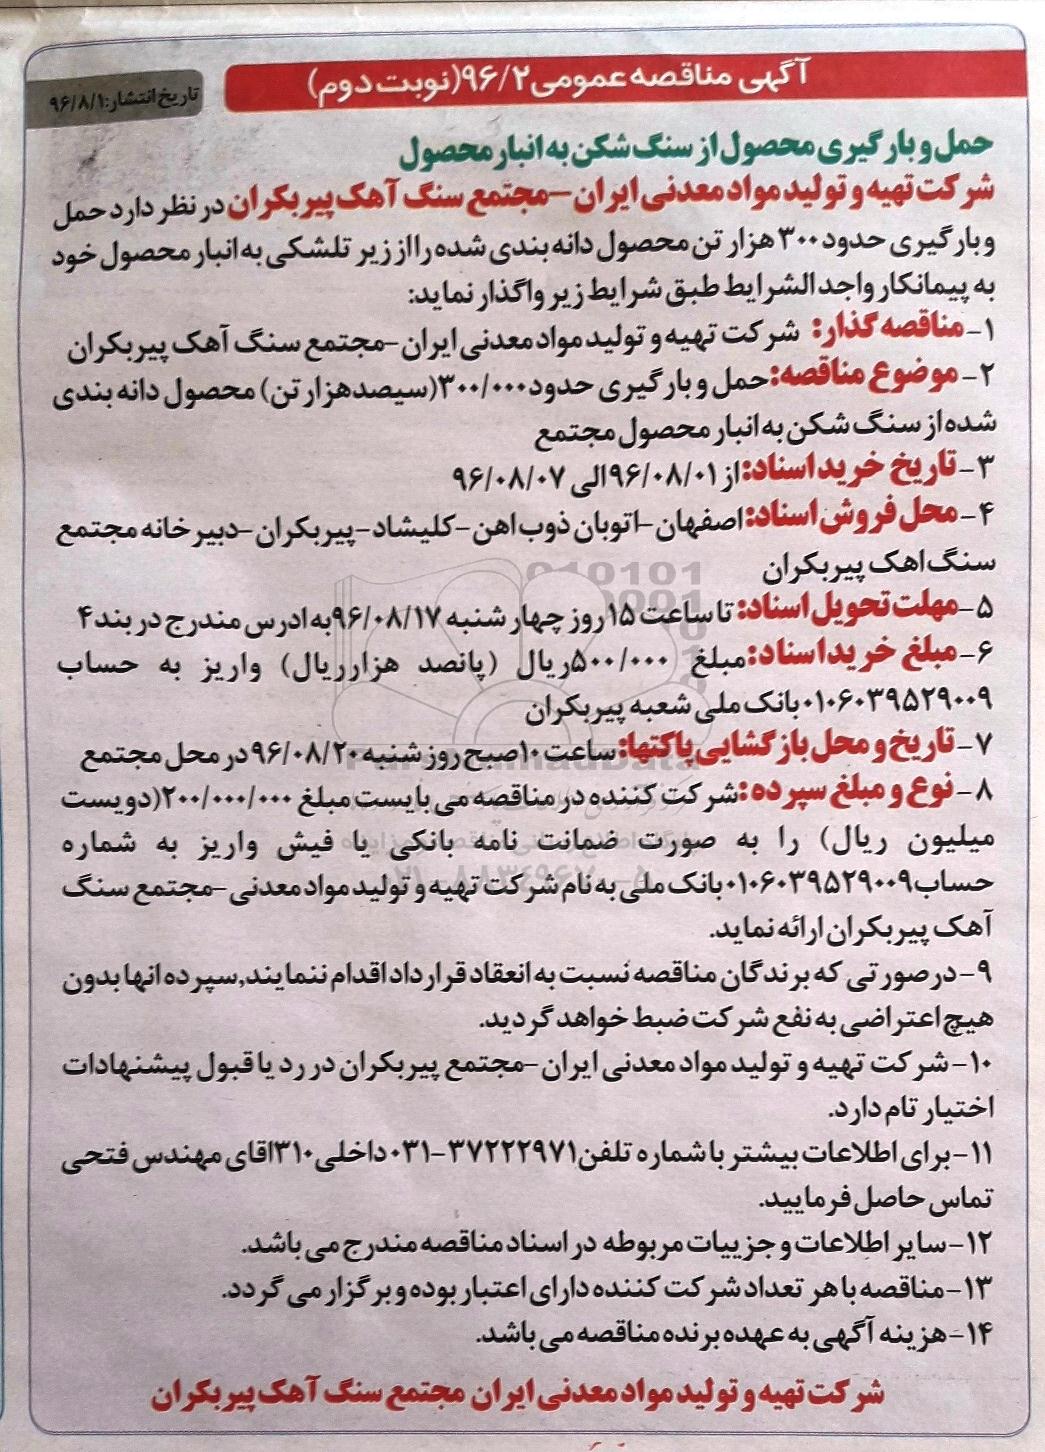 آگهی مناقصه عمومی۹۶/۲(نوبت دوم)
تاریخ انتشار:۹۶/۸/۱
حمل و بارگیری محصول از سنگ شکن به انبار محصول
شرکت تهیه و تولید مواد معدنی ایران -مجتمع سنگ آهک پیربکران در نظر دارد حمل
و بارگیری حدود ۳۰۰ هزار تن محصول دانه بندی شده را از زیر تلشکی به انبار محصول خود
به پیمانکار واجد الشرایط طبق شرایط زیر واگذار نماید:
۱- مناقصه گذار: شرکت تهیه و تولید مواد معدنی ایران -مجتمع سنگ آهک پیربکران
۲- موضوع مناقصه:حمل و بارگیری حدود۳۰۰/۰۰۰(سیصدهزار تن) محصول دانه بندی
شده از سنگ شکن به انبار محصول مجتمع
۳- تاریخ خرید اسناد:از ۹۶/۰۸/۰۱الی ۹۶/۰۸/۰۷
۴- محل فروش اسناد:اصفهان -اتوبان ذوب اهن -کلیشاد-پیربکران -دبیرخانه مجتمع
سنگ اهک پیربکران
۵- مهلت تحویل اسناد: تا ساعت ۱۵ روز چهارشنبه ۹۶/۰۸/۱۷به ادرس مندرج در بند ۴
۶- مبلغ خرید اسناد:مبلغ ۵۰۰/۰۰۰ریال (پانصد هزارریال) واریز به حساب
۰۱۰۶۰۳۹۵۲۹۰۰۹بانک ملی شعبه پیربکران
۷- تاریخ و محل بازگشایی پاکتها:ساعت ۱۰صبح روزشنبه ۹۶/۰۸/۲۰در محل مجتمع
۸- نوع و مبلغ سپرده:شرکت کننده در مناقصه می بایست مبلغ ۲۰۰/۰۰۰/۰۰۰(دویست
میلیون ریال) را به صورت ضمانت نامه بانکی یا فیش واریز به شماره
حساب۰۱۰۶۰۳۹۵۲۹۰۰۹بانک ملی به نام شرکت تهیه و تولید مواد معدنی -مجتمع سنگ
آهک پیربکران ارائه نماید.
۹- درصورتی که برندگان مناقصه نسبت به انعقاد قرارداد اقدام ننمایند,سپرده انها بدون
هیچ اعتراضی به نفع شرکت ضبط خواهد گردید.
۱۰- شرکت تهیه و تولید مواد معدنی ایران -مجتمع پیربکران در رد یا قبول پیشنهادات
اختیار تام دارد.
۱۱- برای اطلاعات بیشتر با شماره تلفن۳۷۲۲۲۹۷۱-۰۳۱داخلی۳۱۰اقای مهندس فتحی
تماس حاصل فرمایید.
۱۲-سایر اطلاعات و جزییات مربوطه در اسناد مناقصه مندرج می باشد.
۱۳-مناقصه با هر تعداد شرکت کننده دارای اعتبار بوده و برگزار می گردد.
۱۴-هزینه آگهی به عهده برنده مناقصه می باشد.
شرکت تهیه و تولید مواد معدنی ایران مجتمع سنگ آهک پیربکران